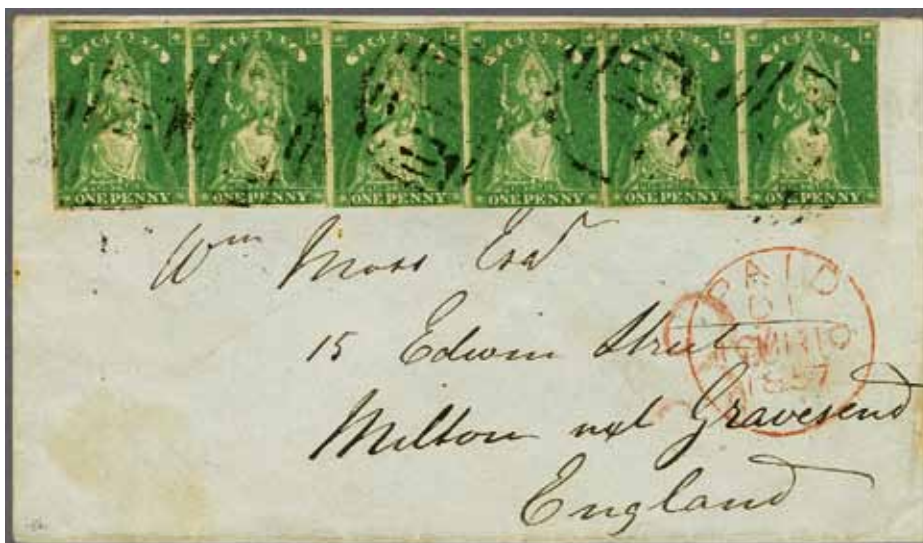 VICTORIA VICTORIA VICTORIA VICTORIA VICTORIA VICTORIA
ONE PENNY ONE PENNY ONE PENNY ONE PENNY ONE PENNY ONE PENNY
Wm Moss Esqr
15 Edwin Street
Milton nxt Gravesend
England
PAID
1857